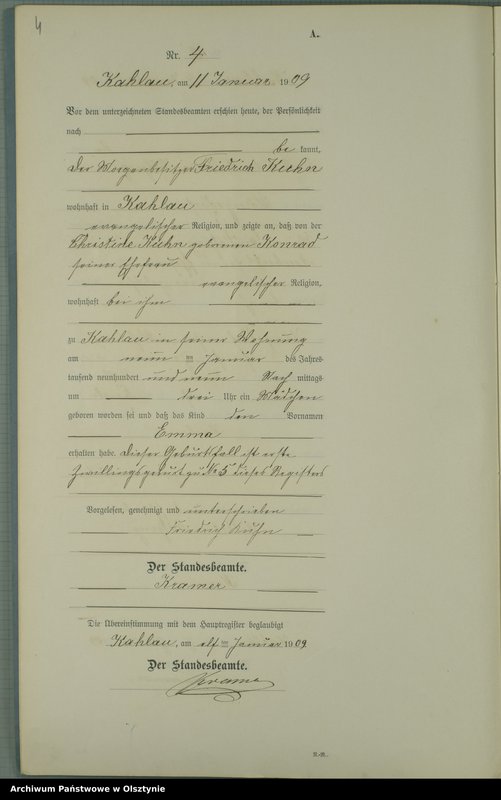 4
A.
Nr. 4
Kahlau, am 11 Januar 1909
Vor dem unterzeichneten Standesbeamten erschien heute, der Persönlichkeit
nach
be kannt,
der Morgenbesitzer Friedrich Kuhn
wohnhaft in Kahlau
evangelischer Religion, und zeigte an, daß von der
Christine Kuhn geborenen Konrad
seiner Ehefrau
evangelischer Religion,
wohnhaft bei ihm
zu Kahlau in seiner Wohnung
am neun ten Januar des Jahres
tausend neunhundert und neun Nach mittags
um drei Uhr ein Mädchen
geboren worden sei und daß das Kind den Vornamen
Emma
erhalten habe. Dieser Geburtsfall ist erste
Zwillingsgeburt zu No 5 dieses Registers
Vorgelesen, genehmigt und unterschrieben
Friedrich Kuhn
Der Standesbeamte.
Kramer
Die Übereinstimmung mit dem Hauptregister beglaubigt
Kahlau, am elf ten Januar 1909
Der Standesbeamte.
Kramer
Archiwum Państwowe w Olsztynie